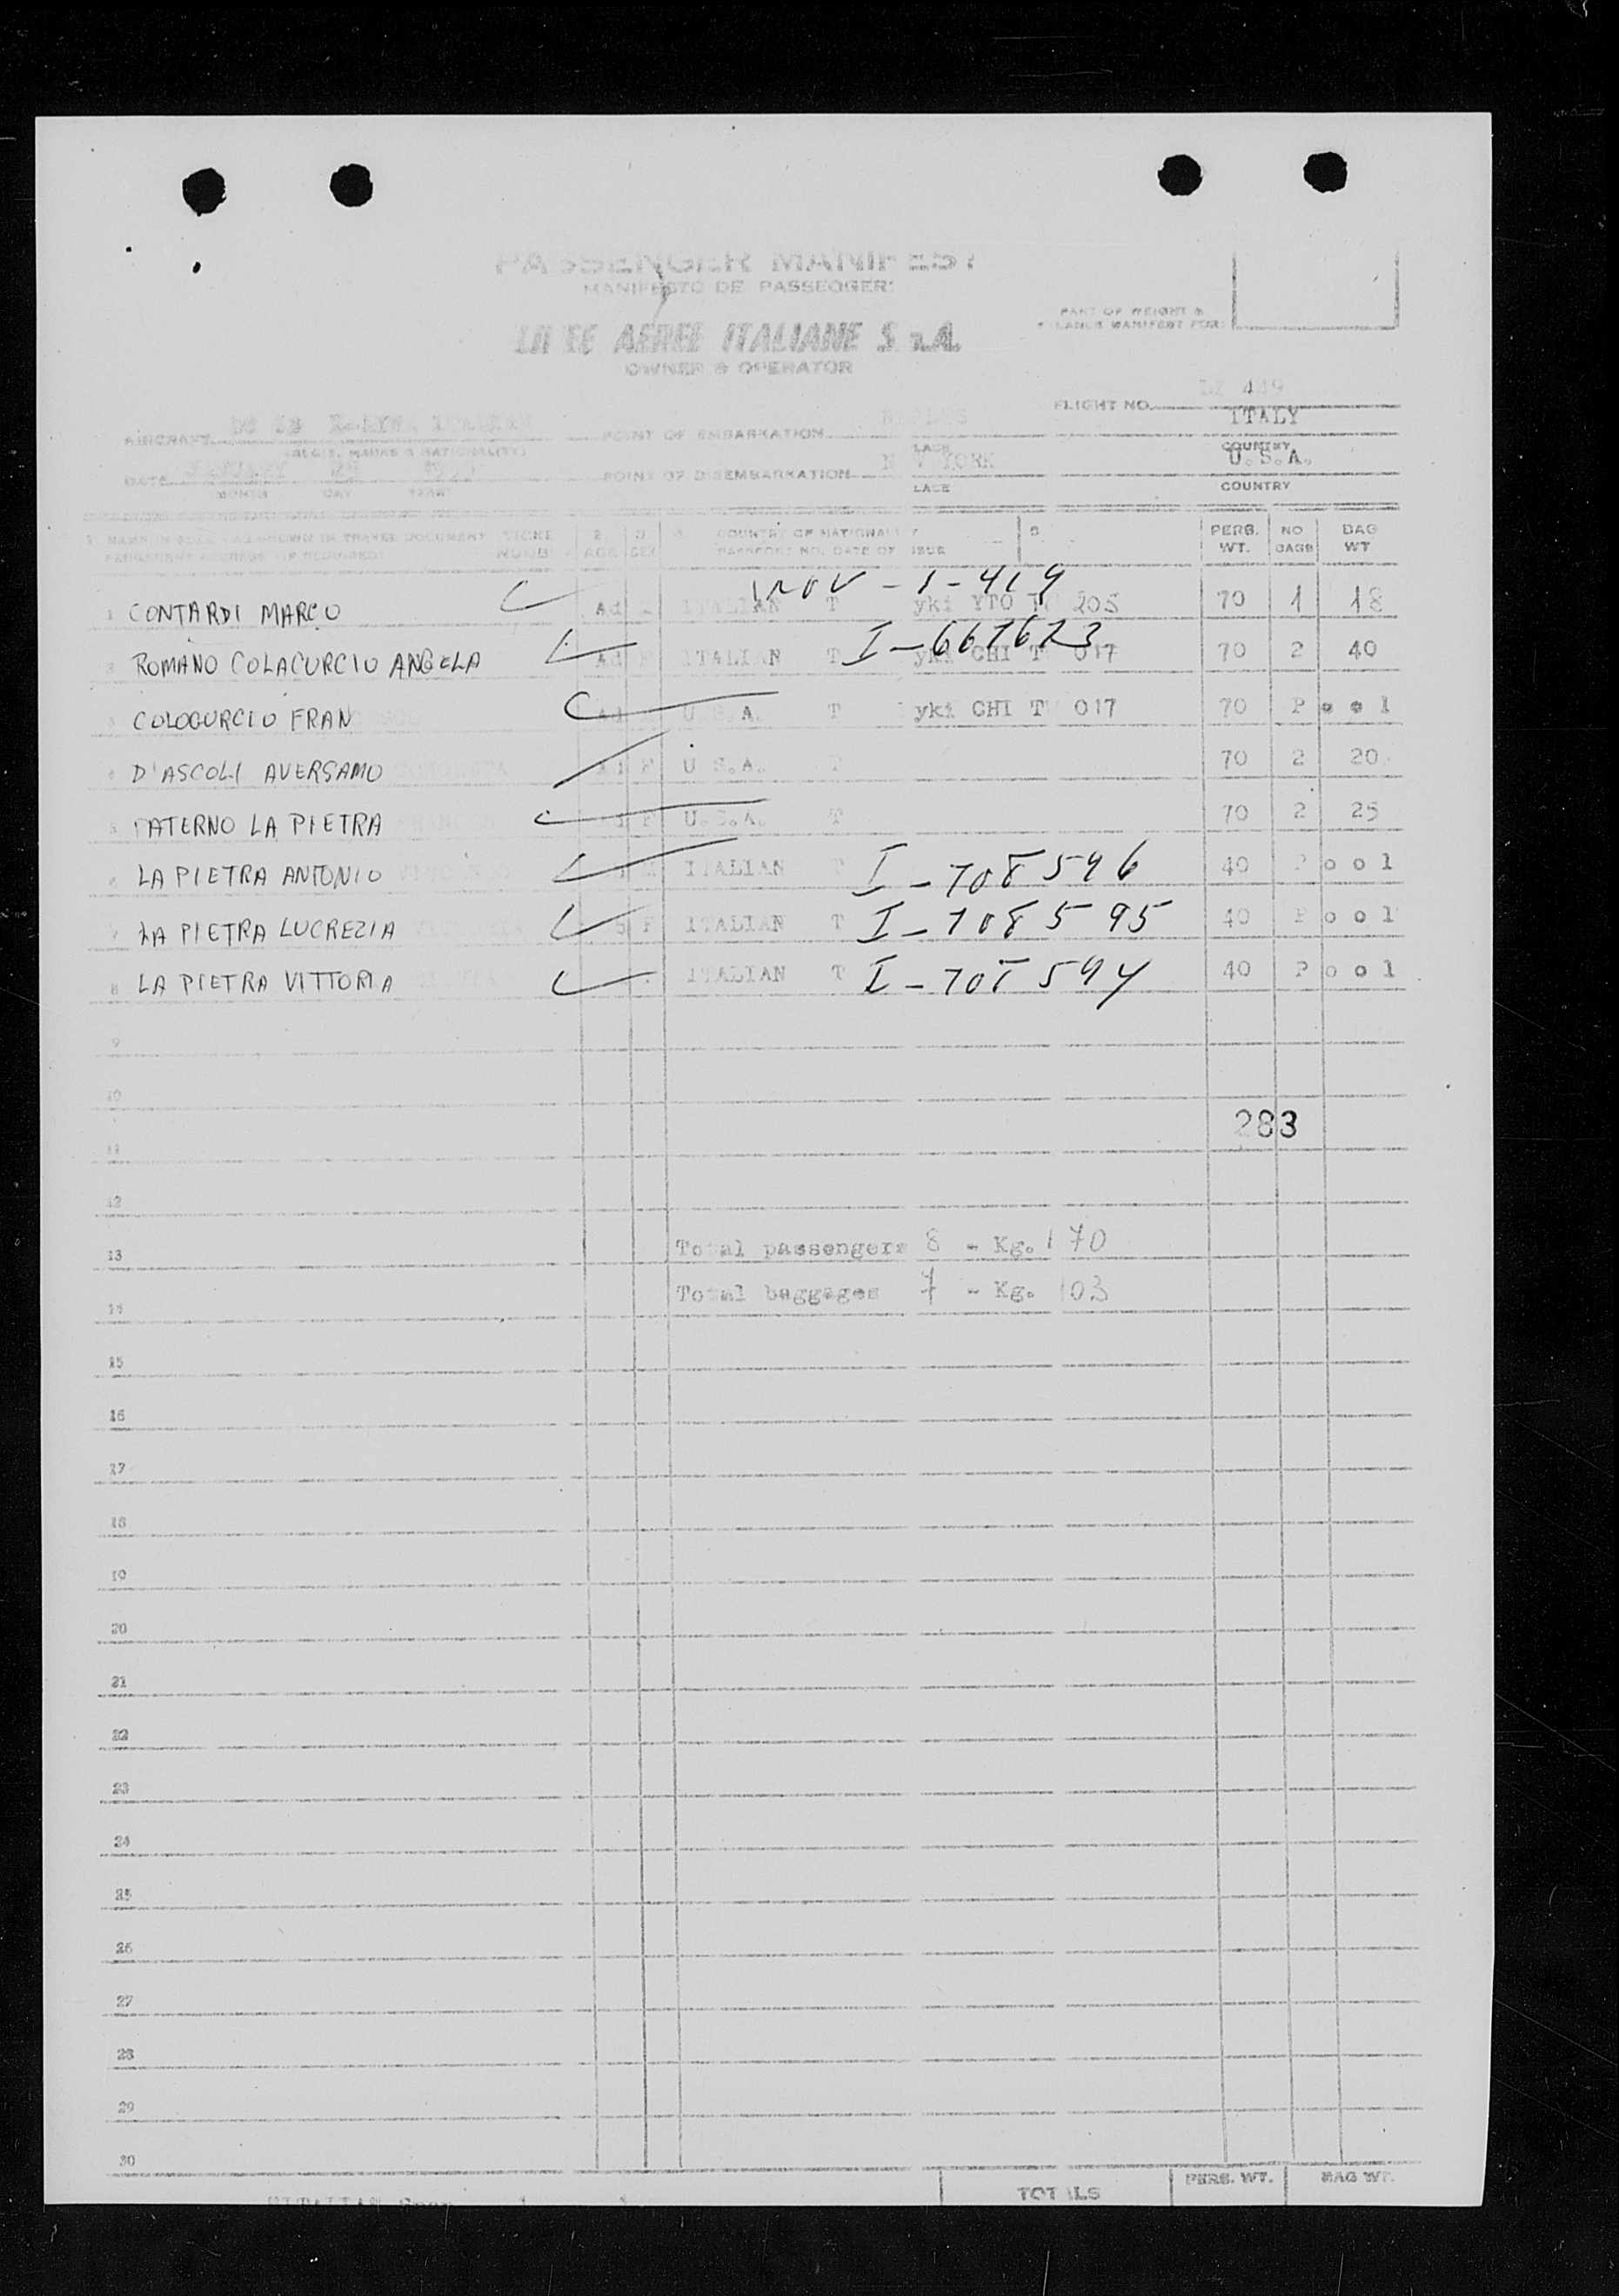 PASSENGER MANIFEST
MANIFESTO DE PASSEGGERI
LINEE AEREE ITALIANE S.p.A.
OWNER & OPERATOR
PART OF WEIGHT &
BALANCE MANIFEST FOR:
FLIGHT NO. 449
AIRCRAFT POINT OF EMBARKATION NAPLES ITALY
(REGIS. MARKS & NATIONALITY) PLACE COUNTRY
DATE JANUARY POINT OF DISEMBARKATION NEW YORK U.S.A.
MONTH DAY YEAR PLACE COUNTRY
AGE SEX COUNTRY OF NATIONALITY PERS. NO BAG
PASSPORT NO. DATE OF ISSUE WT. BAGS WT
1 CONTARDI MARCO Ad ITALIAN T yki YTO 205 70 1 18
2 ROMANO COLACURCIO ANGELA Ad F ITALIAN T I-667623 yki CHI T 017 70 2 40
3 COLOCURCIO FRAN Ad U.S.A. T yki CHI T 017 70 Pool
4 D'ASCOLI AVERSAMO F U.S.A. T 70 2 20
5 PATERNO LA PIETRA F U.S.A. T 70 2 25
6 LA PIETRA ANTONIO ITALIAN T I-708596 40 Pool
7 LA PIETRA LUCREZIA F ITALIAN T I-708595 40 Pool
8 LA PIETRA VITTORIA ITALIAN T I-708594 40 Pool
9
10
283
11
12
13 Total passengers 8 - Kg. 170
Total baggages 7 - Kg. 103
14
15
16
17
18
19
20
21
22
23
24
25
26
27
28
29
30
TOTALS PERS. WT. BAG WT.